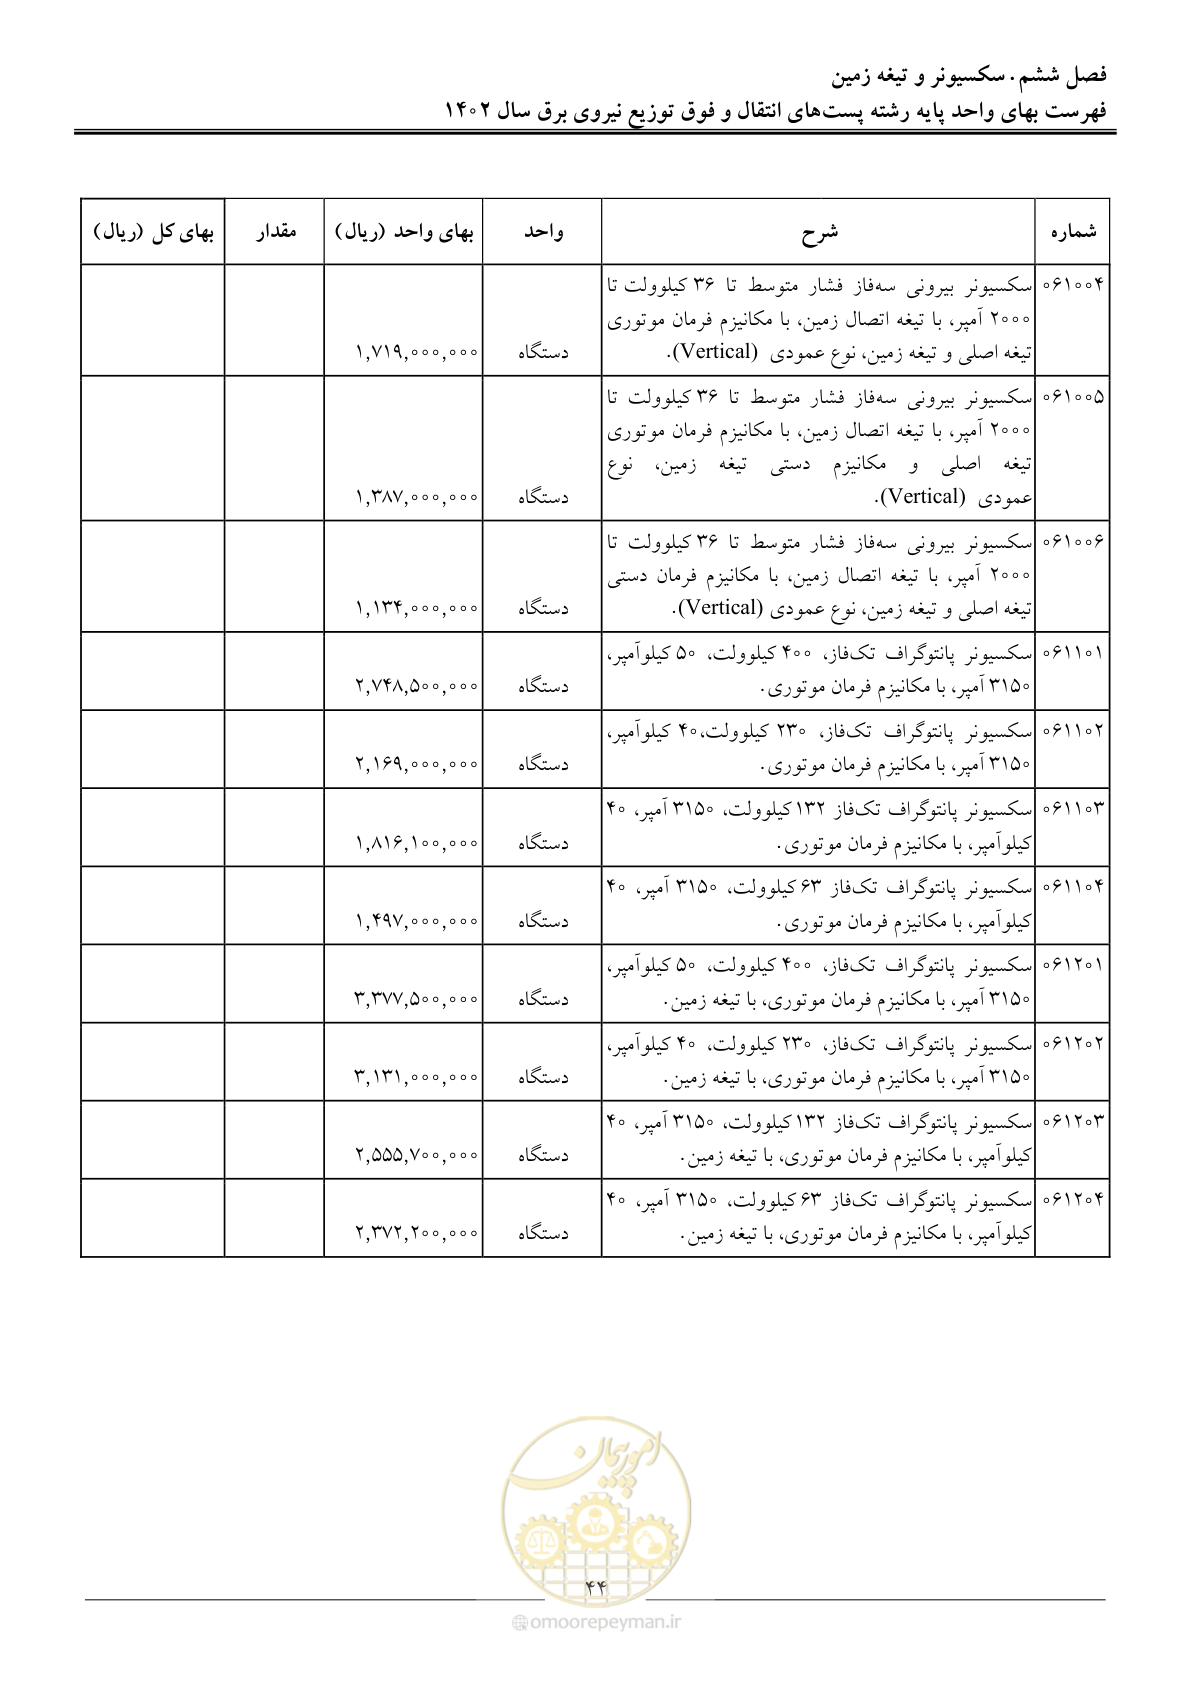 فصل ششم. سکسیونر و تیغه زمین
فهرست بهای واحد پایه رشته پست‌های انتقال و فوق توزیع نیروی برق سال ۱۴۰۲
شماره شرح واحد بهای واحد (ریال) مقدار بهای کل (ریال)
۰۶۱۰۰۴ سکسیونر بیرونی سه‌فاز فشار متوسط تا ۳۶ کیلوولت تا
۲۰۰۰ آمپر، با تیغه اتصال زمین، با مکانیزم فرمان موتوری
تیغه اصلی و تیغه زمین، نوع عمودی (Vertical). دستگاه ۱,۷۱۹,۰۰۰,۰۰۰
۰۶۱۰۰۵ سکسیونر بیرونی سه‌فاز فشار متوسط تا ۳۶ کیلوولت تا
۲۰۰۰ آمپر، با تیغه اتصال زمین، با مکانیزم فرمان موتوری
تیغه اصلی و مکانیزم دستی تیغه زمین، نوع
عمودی (Vertical). دستگاه ۱,۳۸۷,۰۰۰,۰۰۰
۰۶۱۰۰۶ سکسیونر بیرونی سه‌فاز فشار متوسط تا ۳۶ کیلوولت تا
۲۰۰۰ آمپر، با تیغه اتصال زمین، با مکانیزم فرمان دستی
تیغه اصلی و تیغه زمین، نوع عمودی (Vertical). دستگاه ۱,۱۳۴,۰۰۰,۰۰۰
۰۶۱۱۰۱ سکسیونر پانتوگراف تک‌فاز، ۴۰۰ کیلوولت، ۵۰ کیلوآمپر،
۳۱۵۰ آمپر، با مکانیزم فرمان موتوری. دستگاه ۲,۷۴۸,۵۰۰,۰۰۰
۰۶۱۱۰۲ سکسیونر پانتوگراف تک‌فاز، ۲۳۰ کیلوولت،۴۰ کیلوآمپر،
۳۱۵۰ آمپر، با مکانیزم فرمان موتوری. دستگاه ۲,۱۶۹,۰۰۰,۰۰۰
۰۶۱۱۰۳ سکسیونر پانتوگراف تک‌فاز ۱۳۲ کیلوولت، ۳۱۵۰ آمپر، ۴۰
کیلوآمپر، با مکانیزم فرمان موتوری. دستگاه ۱,۸۱۶,۱۰۰,۰۰۰
۰۶۱۱۰۴ سکسیونر پانتوگراف تک‌فاز ۶۳ کیلوولت، ۳۱۵۰ آمپر، ۴۰
کیلوآمپر، با مکانیزم فرمان موتوری. دستگاه ۱,۴۹۷,۰۰۰,۰۰۰
۰۶۱۲۰۱ سکسیونر پانتوگراف تک‌فاز، ۴۰۰ کیلوولت، ۵۰ کیلوآمپر،
۳۱۵۰ آمپر، با مکانیزم فرمان موتوری، با تیغه زمین. دستگاه ۳,۳۷۷,۵۰۰,۰۰۰
۰۶۱۲۰۲ سکسیونر پانتوگراف تک‌فاز، ۲۳۰ کیلوولت، ۴۰ کیلوآمپر،
۳۱۵۰ آمپر، با مکانیزم فرمان موتوری، با تیغه زمین. دستگاه ۳,۱۳۱,۰۰۰,۰۰۰
۰۶۱۲۰۳ سکسیونر پانتوگراف تک‌فاز ۱۳۲ کیلوولت، ۳۱۵۰ آمپر، ۴۰
کیلوآمپر، با مکانیزم فرمان موتوری، با تیغه زمین. دستگاه ۲,۵۵۵,۷۰۰,۰۰۰
۰۶۱۲۰۴ سکسیونر پانتوگراف تک‌فاز ۶۳ کیلوولت، ۳۱۵۰ آمپر، ۴۰
کیلوآمپر، با مکانیزم فرمان موتوری، با تیغه زمین. دستگاه ۲,۳۷۲,۲۰۰,۰۰۰
امور پیمان
۴۴
omoorepeyman.ir